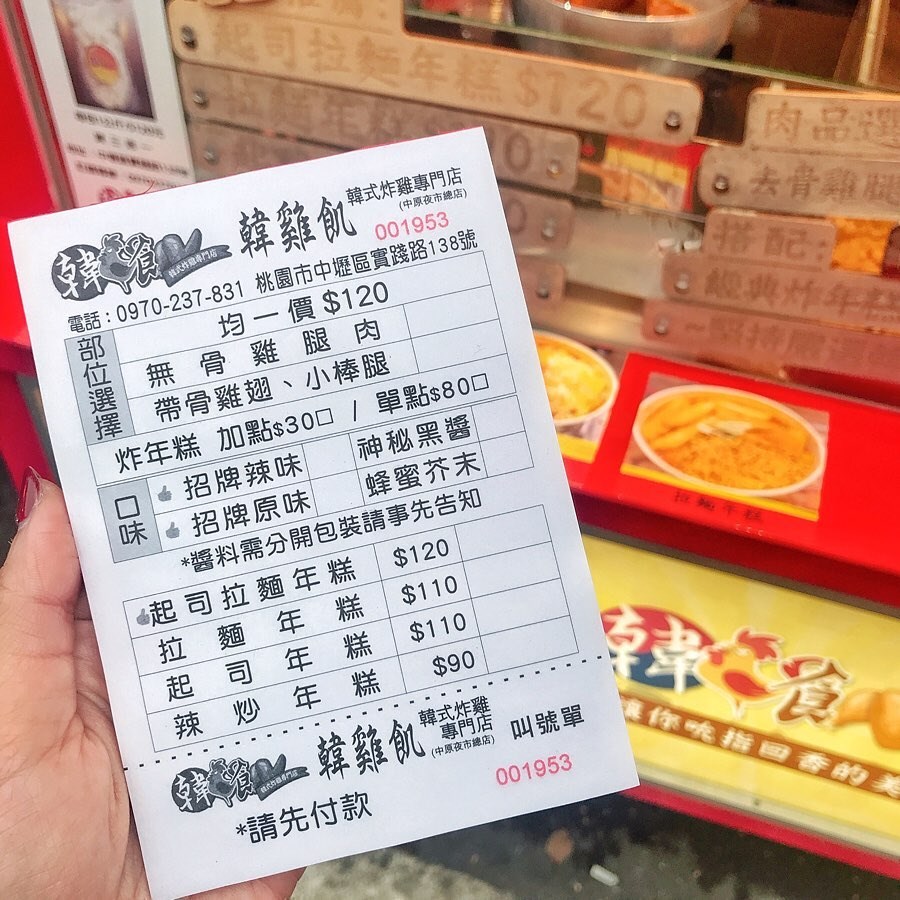 起司拉麵年糕$120
肉品選
去骨
搭配
經典炸年糕
韓餐
韓式炸雞專門店
韓雞飢
韓式炸雞專門店
(中原夜市總店)
001953
電話：0970-237-831 桃園市中壢區實踐路138號
部位選擇
均一價$120
無骨雞腿肉
帶骨雞翅、小棒腿
炸年糕 加點$30□ / 單點$80□
口味
招牌辣味 神秘黑醬
招牌原味 蜂蜜芥末
*醬料需分開包裝請事先告知
起司拉麵年糕 $120
拉麵年糕 $110
起司年糕 $110
辣炒年糕 $90
韓餐
韓式炸雞專門店
韓雞飢
韓式炸雞
專門店
(中原夜市總店)
叫號單
001953
*請先付款
拉麵年糕
韓餐
讓你吮指回香的美